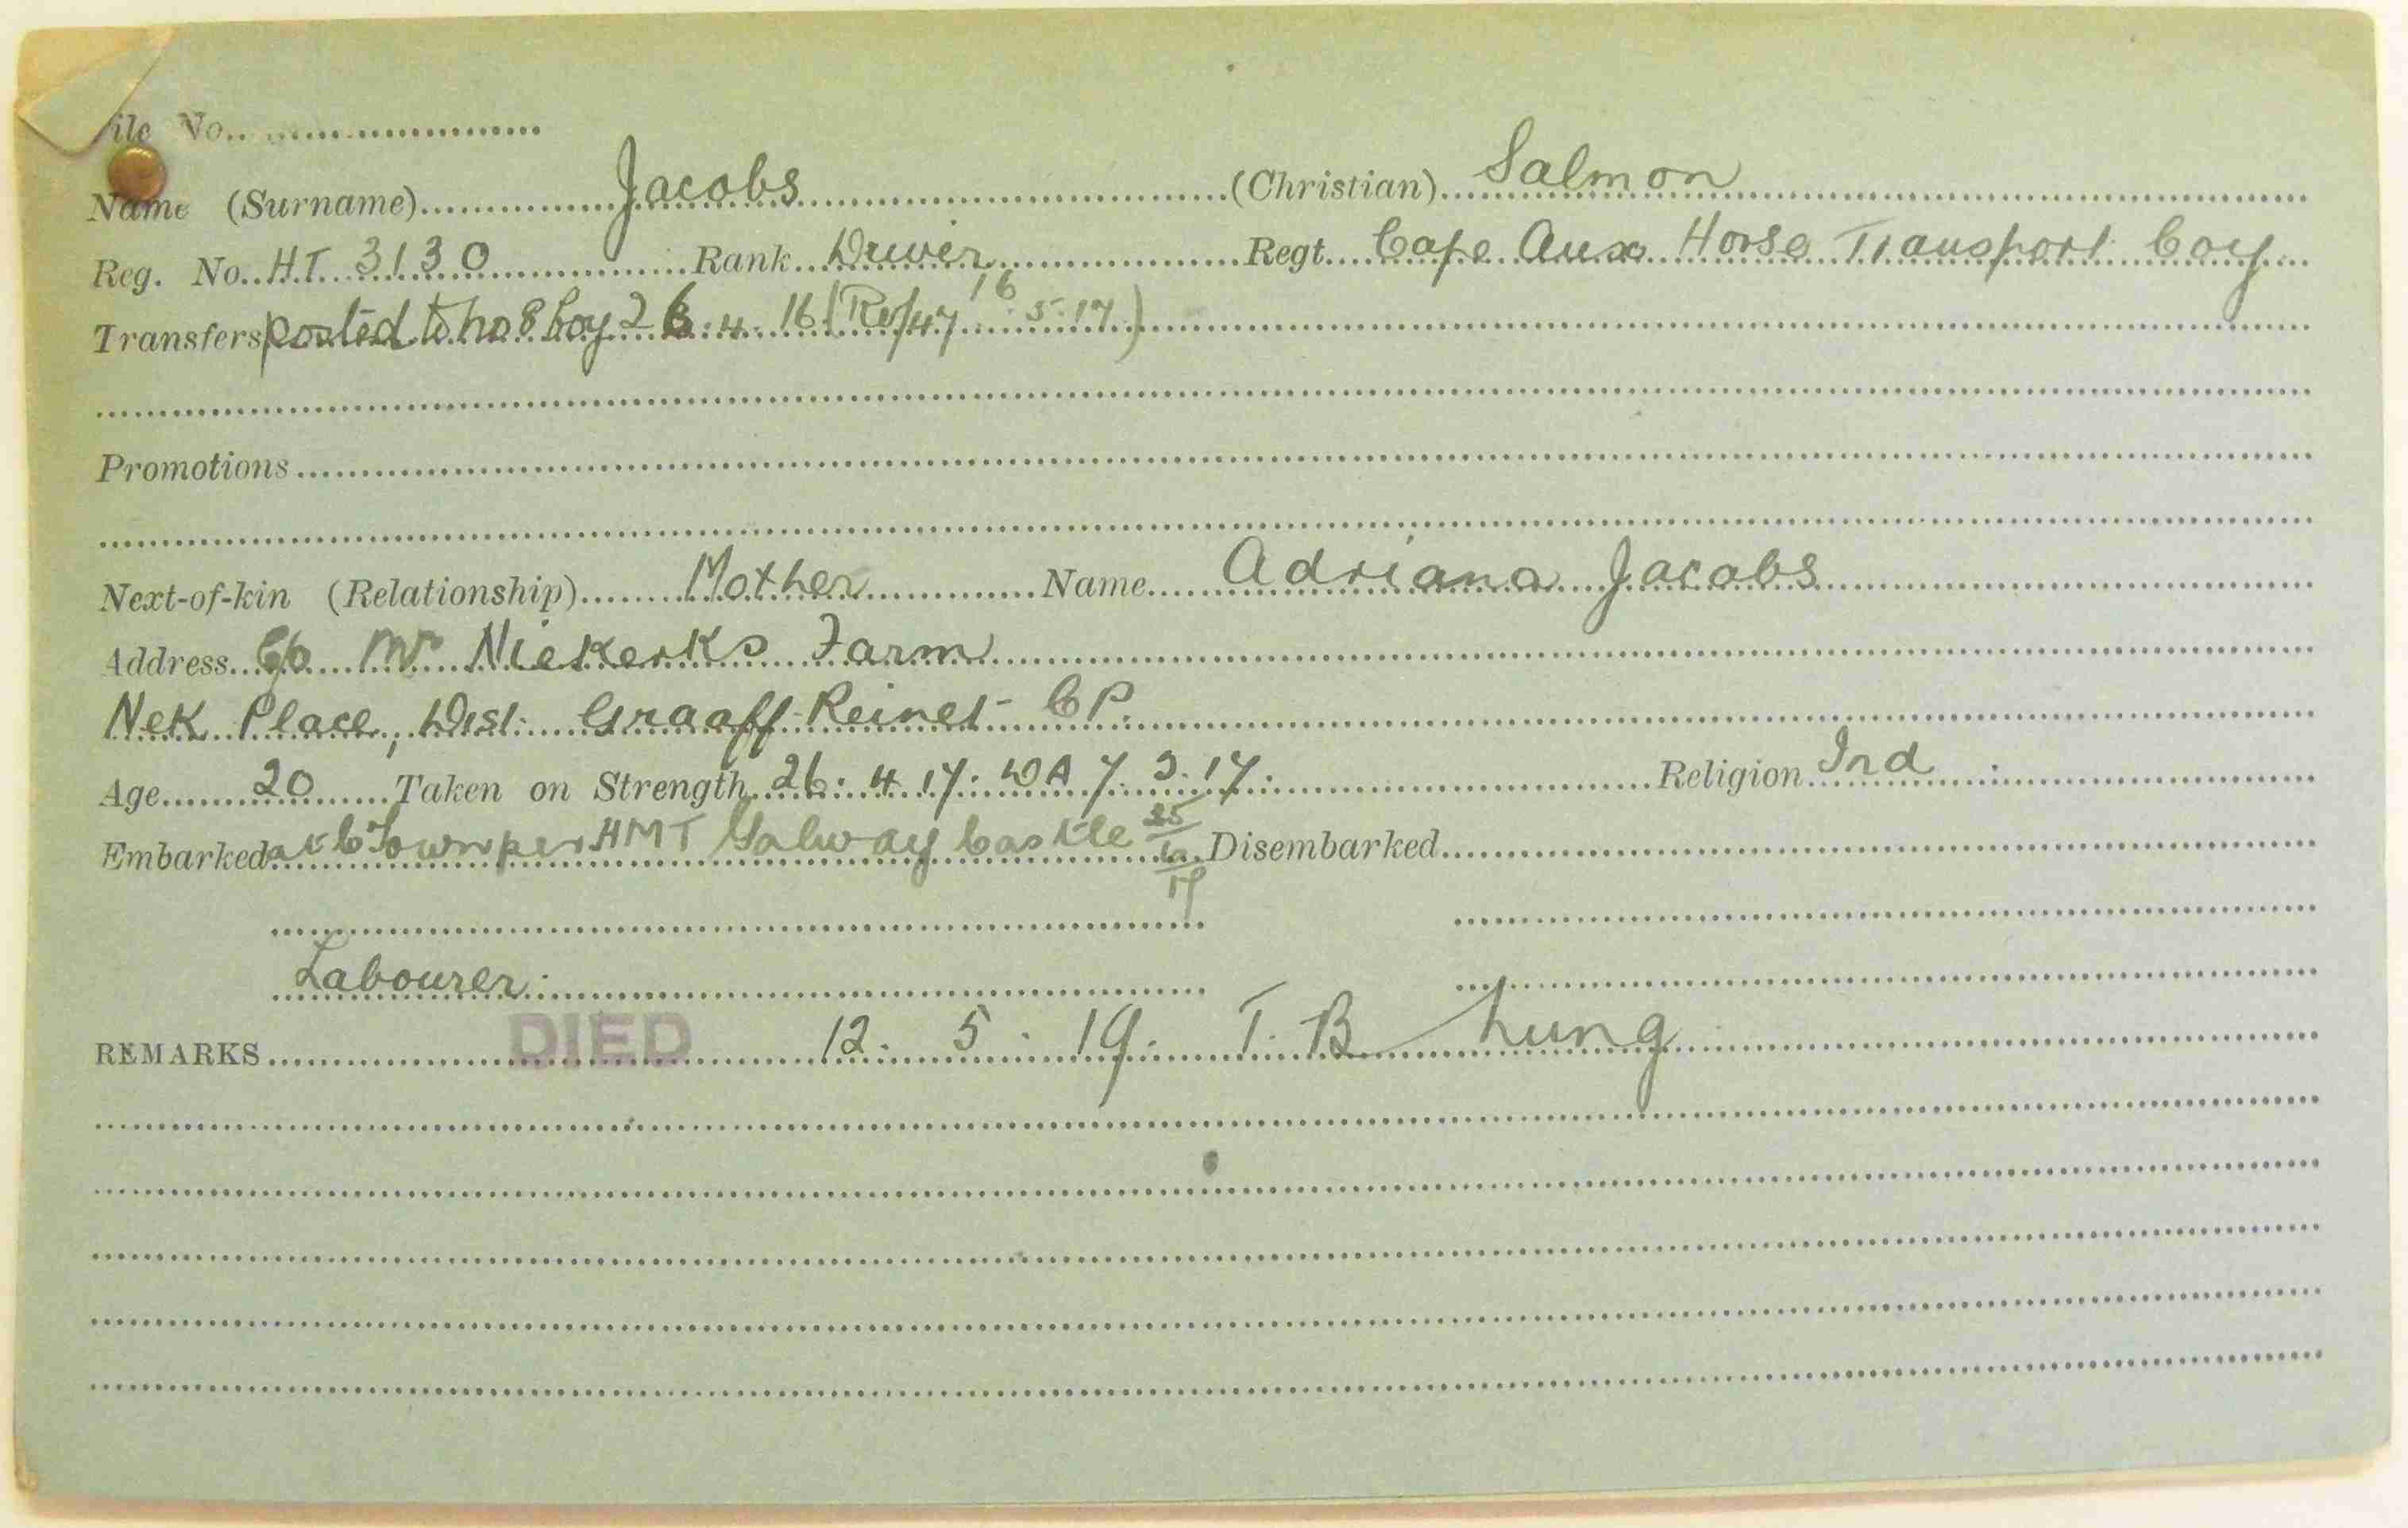 ile No.
Name (Surname) Jacobs (Christian) Salmon
Reg. No. HT 3130 Rank Driver Regt. Cape Aux Horse Transport Coy
Transfers posted to No 8 Coy 26.4.16 (Ro/47 16.5.17)
Promotions
Next-of-kin (Relationship) Mother Name Adriana Jacobs
Address C/o Mr Niekerks Farm
Nek Place, Dist. Graaff-Reinet CP.
Age 20 Taken on Strength 26.4.17. DA 7.5.17. Religion Ind
Embarked at C Town per HMT Galway Castle Disembarked
Labourer.
REMARKS DIED 12.5.19. T.B Lung